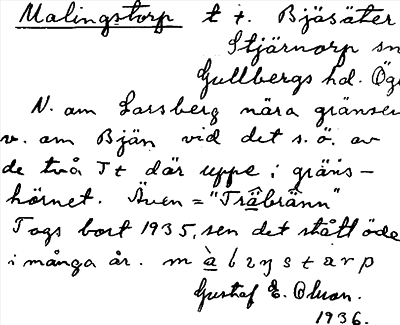 Malingstorp t. t. Bjäsäter
Stjärnorp sn
Gullbergs hd. Ög
N. om Larsberg nära gränsen
v. om Bjän vid det s.ö. av
de två Tt där uppe i gräns-
hörnet. Även = "Träbränn"
Togs bort 1935, sen det stått öde
i många år. màlıŋstɑrp
Gustaf E. Olson.
1936.